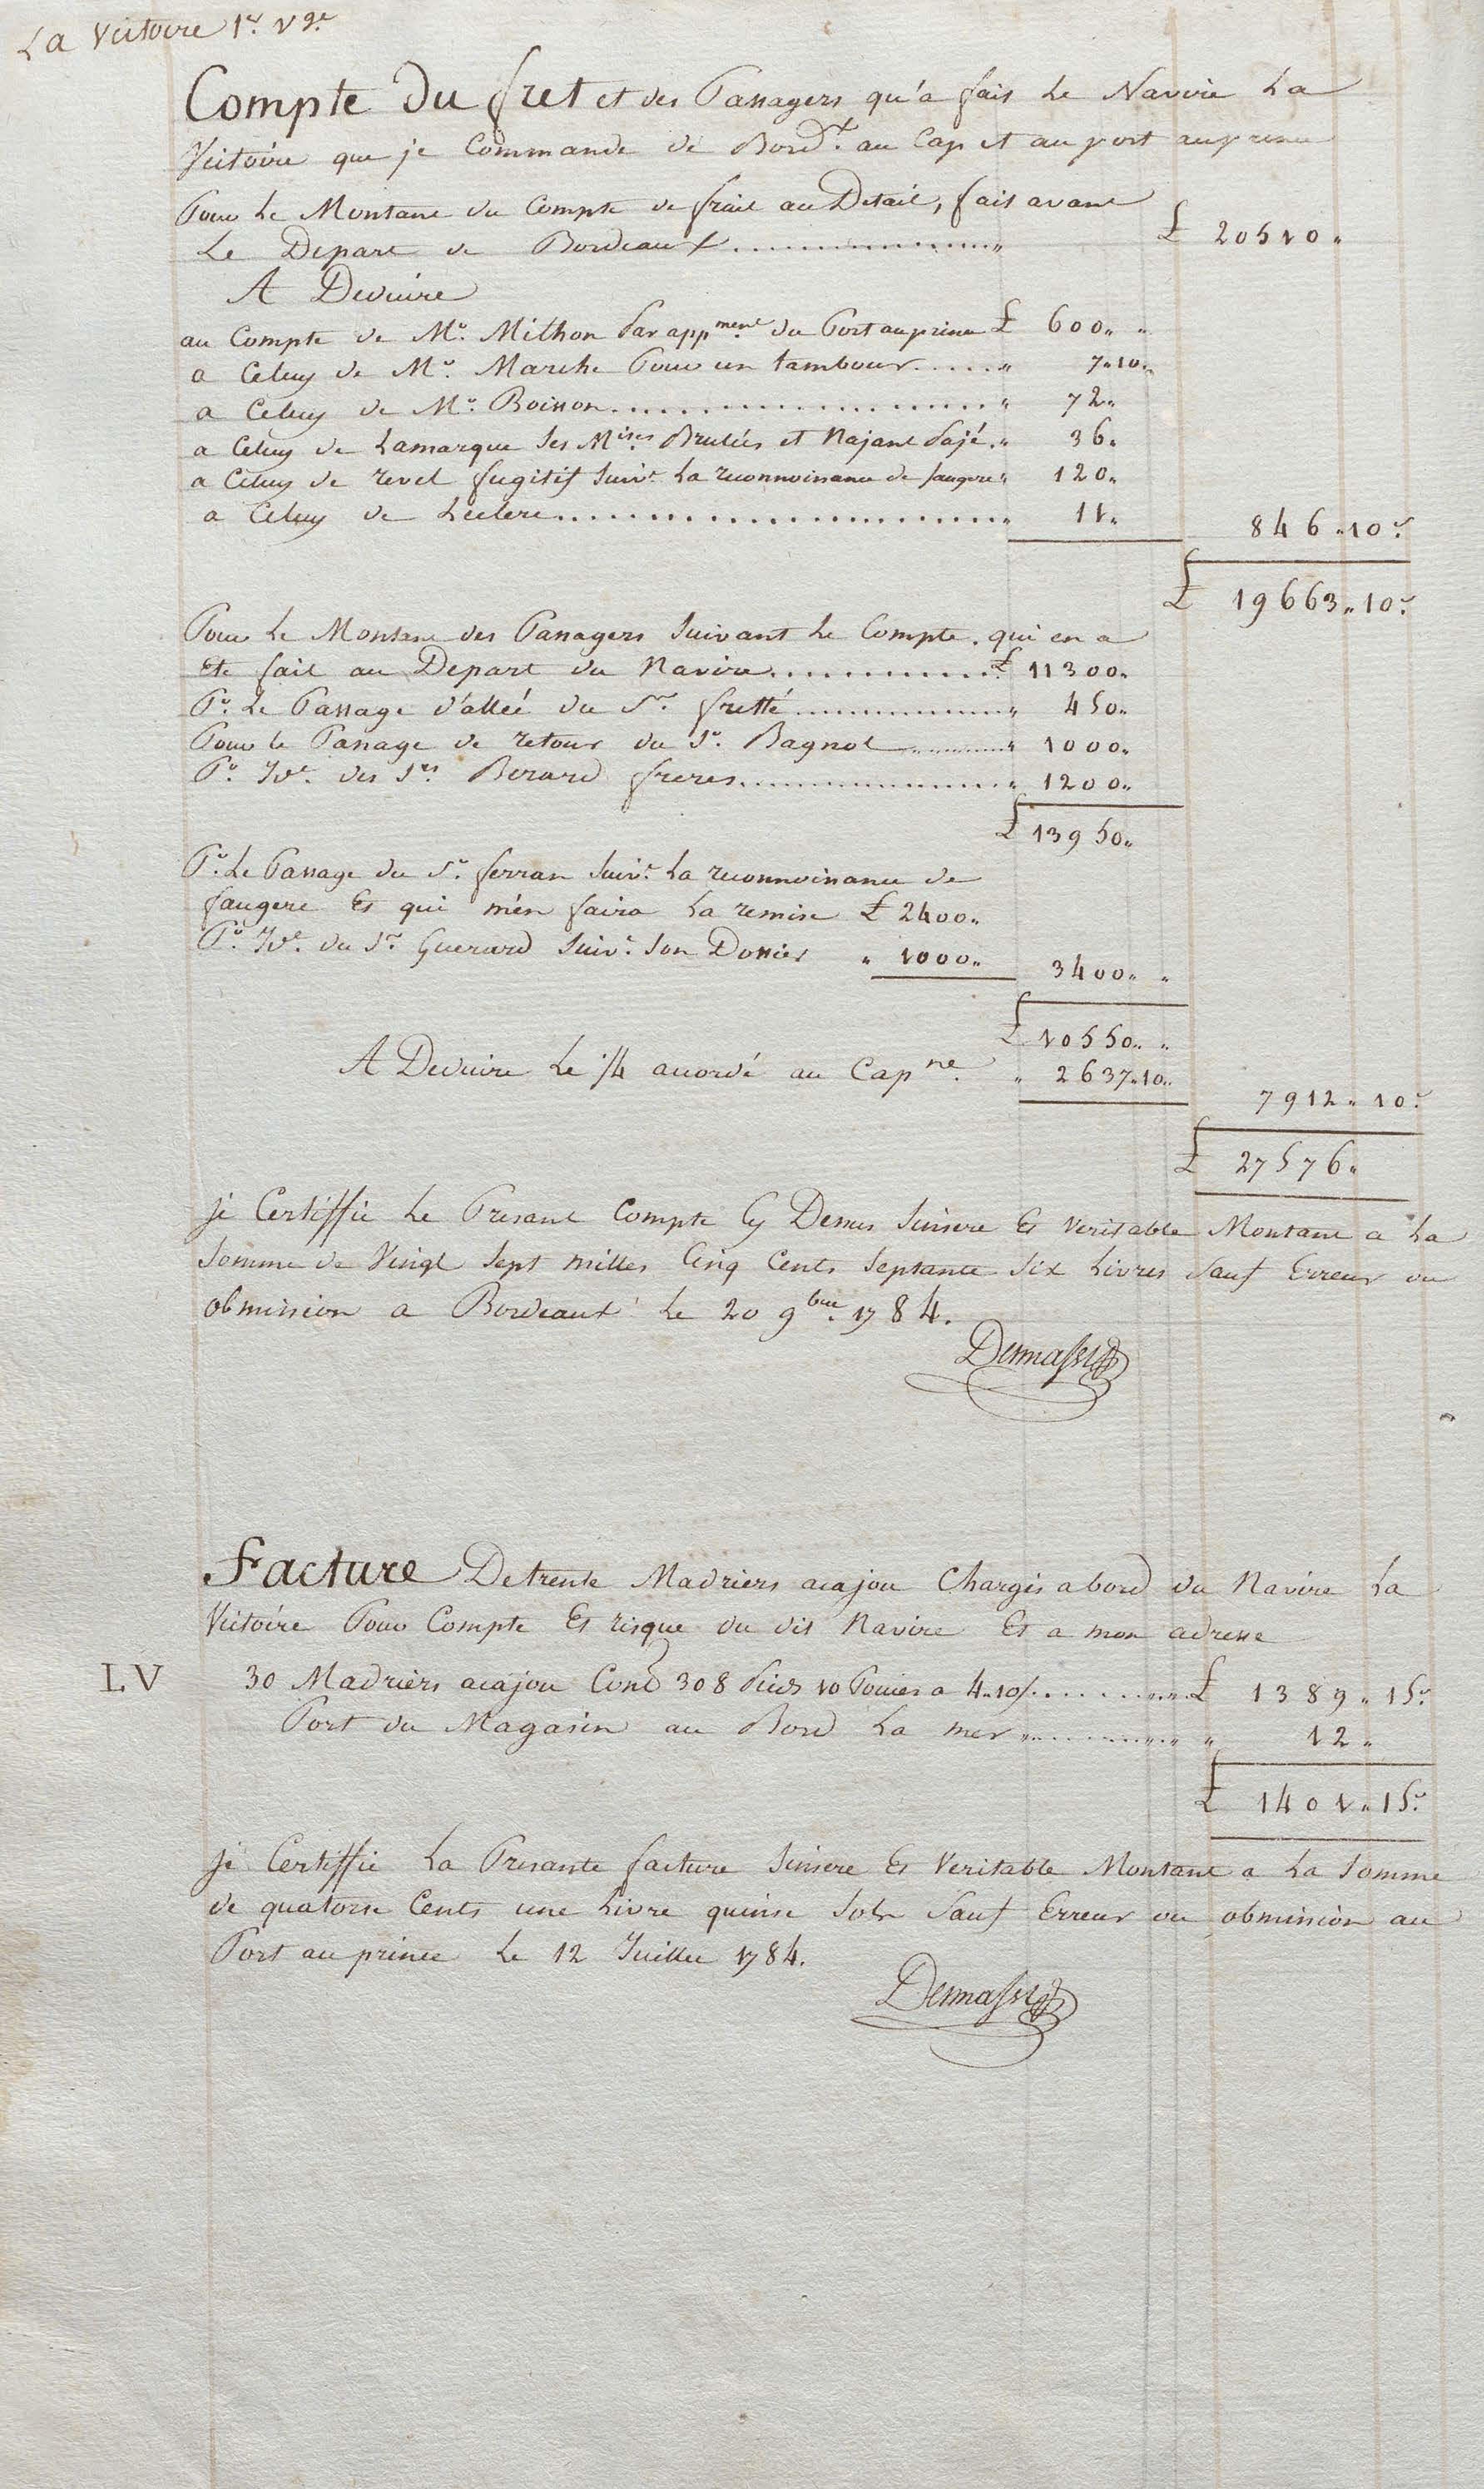 La Victoire 1er. Vge.
Compte Du fret et des Passagers qu'a fais Le Navire La
Victoire que je Commande de Bordx. au Cap et au port au prince
Pour Le Montant du Compte de frait au Detail, fait avant
Le Depart de Bordeaux ........ " £ 20510 "
A Deduire
au Compte de Mr. Milhon Par appment. du Port au prince £ 600 " "
a Celuy de Mr. Marche Pour un tambour ...... " 7 " 10 "
a Celuy de Mr. Boisson ........ " 72 "
a Celuy de Lamarque Ses Mises Brulées et Najant Pajé. " 36 "
a Celuy de revel fugitif Suivt. La reconnoissance de faugere " 120 "
a Celuy de Leclerc ........ " 11 " 846 " 10 s.
£ 19663 " 10 s.
Pour Le Montant des Passagers Suivant Le Compte. qui en a
Ete fait au Depart du Navire ........ £ 11300 "
Pr. Le Passage d'allée du Sr. fretté ........ " 450 "
Pour le Passage de retour du Sr. Bagnol ........ " 1000 "
Pr. Ide. des Srs. Berard freres ........ " 1200 "
£ 13950 "
Pr. Le Passage du Sr. ferran Suivt. La reconnoissance de
faugere Et qui m'en faira La remise £ 2400 "
Pr. Ide. du Sr. Guerard Suivt. Son Dossier " 1000 " 3400 " "
£ 10550 " "
A Deduire Le 1/4 accordé au Capne. " 2637 " 10 " 7912 " 10 s.
£ 27576 "
je Certiffie Le Presant Compte Cy Dessus Sinsere Et Veritable Montant a La
Somme de Vingt Sept milles Cinq Cents Septante Six Livres Sauf Erreur ou
obmission a Bordeaux Le 20 9bre. 1784.
Facture De trente Madriers acajou Chargés abord du Navire La
Victoire Pour Compte Et risque du dit Navire Et a mon adresse
LV 30 Madriers acajou Cont 308 Pieds 10 Pouces a 4.10/ ........ £ 1389 " 15 s.
Port du Magasin au Bord La mer ........ " 12 "
£ 1401 " 15 s.
je Certiffie La Presante facture Sinsere Et Veritable Montant a La Somme
de quatorse Cents une Livre quinse Sols Sauf Erreur ou obmission au
Port au prince Le 12 Juillet 1784.